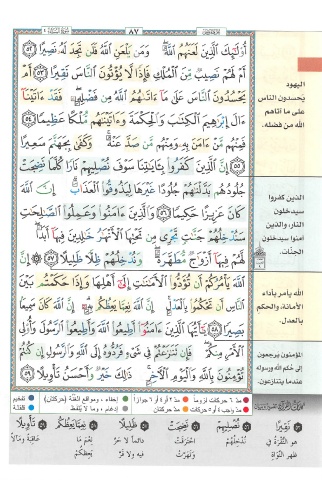 ٨٧
أُوْلَٰٓئِكَ ٱلَّذِينَ لَعَنَهُمُ ٱللَّهُ ۖ وَمَن يَلْعَنِ ٱللَّهُ فَلَن تَجِدَ لَهُۥ نَصِيرًا ٥٢
أَمْ لَهُمْ نَصِيبٌ مِّنَ ٱلْمُلْكِ فَإِذًا لَّا يُؤْتُونَ ٱلنَّاسَ نَقِيرًا ٥٣ أَمْ
يَحْسُدُونَ ٱلنَّاسَ عَلَىٰ مَآ ءَاتَىٰهُمُ ٱللَّهُ مِن فَضْلِهِۦ ۖ فَقَدْ ءَاتَيْنَآ
ءَالَ إِبْرَٰهِيمَ ٱلْكِتَٰبَ وَٱلْحِكْمَةَ وَءَاتَيْنَٰهُم مُّلْكًا عَظِيمًا ٥٤
فَمِنْهُم مَّنْ ءَامَنَ بِهِۦ وَمِنْهُم مَّن صَدَّ عَنْهُ ۚ وَكَفَىٰ بِجَهَنَّمَ سَعِيرًا
٥٥ إِنَّ ٱلَّذِينَ كَفَرُوا۟ بِـَٔايَٰتِنَا سَوْفَ نُصْلِيهِمْ نَارًا كُلَّمَا نَضِجَتْ
جُلُودُهُم بَدَّلْنَٰهُمْ جُلُودًا غَيْرَهَا لِيَذُوقُوا۟ ٱلْعَذَابَ ۗ إِنَّ ٱللَّهَ
كَانَ عَزِيزًا حَكِيمًا ٥٦ وَٱلَّذِينَ ءَامَنُوا۟ وَعَمِلُوا۟ ٱلصَّٰلِحَٰتِ
سَنُدْخِلُهُمْ جَنَّٰتٍ تَجْرِى مِن تَحْتِهَا ٱلْأَنْهَٰرُ خَٰلِدِينَ فِيهَآ أَبَدًا ۖ
لَّهُمْ فِيهَآ أَزْوَٰجٌ مُّطَهَّرَةٌ ۖ وَنُدْخِلُهُمْ ظِلًّا ظَلِيلًا ٥٧ إِنَّ
ٱللَّهَ يَأْمُرُكُمْ أَن تُؤَدُّوا۟ ٱلْأَمَٰنَٰتِ إِلَىٰٓ أَهْلِهَا وَإِذَا حَكَمْتُم بَيْنَ
ٱلنَّاسِ أَن تَحْكُمُوا۟ بِٱلْعَدْلِ ۚ إِنَّ ٱللَّهَ نِعِمَّا يَعِظُكُم بِهِۦٓ ۗ إِنَّ ٱللَّهَ كَانَ سَمِيعًۢا
بَصِيرًا ٥٨ يَٰٓأَيُّهَا ٱلَّذِينَ ءَامَنُوٓا۟ أَطِيعُوا۟ ٱللَّهَ وَأَطِيعُوا۟ ٱلرَّسُولَ وَأُو۟لِى
ٱلْأَمْرِ مِنكُمْ ۖ فَإِن تَنَٰزَعْتُمْ فِى شَىْءٍ فَرُدُّوهُ إِلَى ٱللَّهِ وَٱلرَّسُولِ إِن كُنتُمْ
تُؤْمِنُونَ بِٱللَّهِ وَٱلْيَوْمِ ٱلْءَاخِرِ ۚ ذَٰلِكَ خَيْرٌ وَأَحْسَنُ تَأْوِيلًا ٥٩
اليهود
يَحسدون الناس
على ما آتاهم
الله من فضله.
الذين كفروا
سيدخلون
النار، والذين
آمنوا سيدخلون
الجنات.
الله يأمر بأداء
الأمانة، والحكم
بالعدل.
المؤمنون يرجعون
إلى حكم الله ورسوله
عندما يتنازعون.
مدّ ٦ حركات لزوماً
مدّ ٢ أو ٤ أو ٦ جوازاً
إخفاء، ومواقع الغُنَّة (حركتان)
تفخيم
مدّ واجب ٤ أو ٥ حركات
مدّ حركتان
إدغام، وما لا يُلفَظ
قلقلة
نَقِيرًا
هو النُّقْرَةُ في
ظَهْرِ النَّوَاةِ
نُصْلِيهِمْ
نُدْخِلُهُمْ
نَضِجَتْ
احترَقَتْ
ظَلِيلًا
دائماً لا حَرَّ
نِعِمَّا يَعِظُكُم
نِعْمَ مَا
تَأْوِيلًا
عاقِبَةً ومآلاً